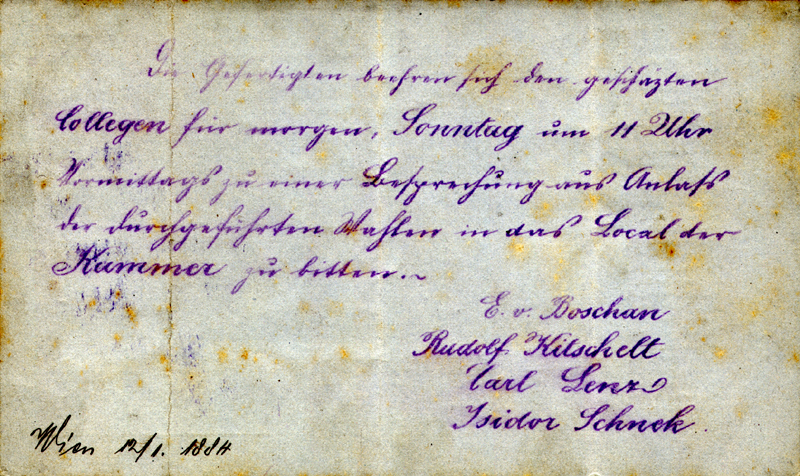 Die Gefertigten beehren sich den geschäzten
Collegen für morgen, Sonntag um 11 Uhr
Vormittags zu einer Besprechung aus Anlaſs
der durchgeführten Wahlen in das Local der
Kammer zu bitten.~
E. v. Boschan
Rudolf Kitschelt
Carl Lenz
Isidor Schnek.
Wien 12/1. 1884